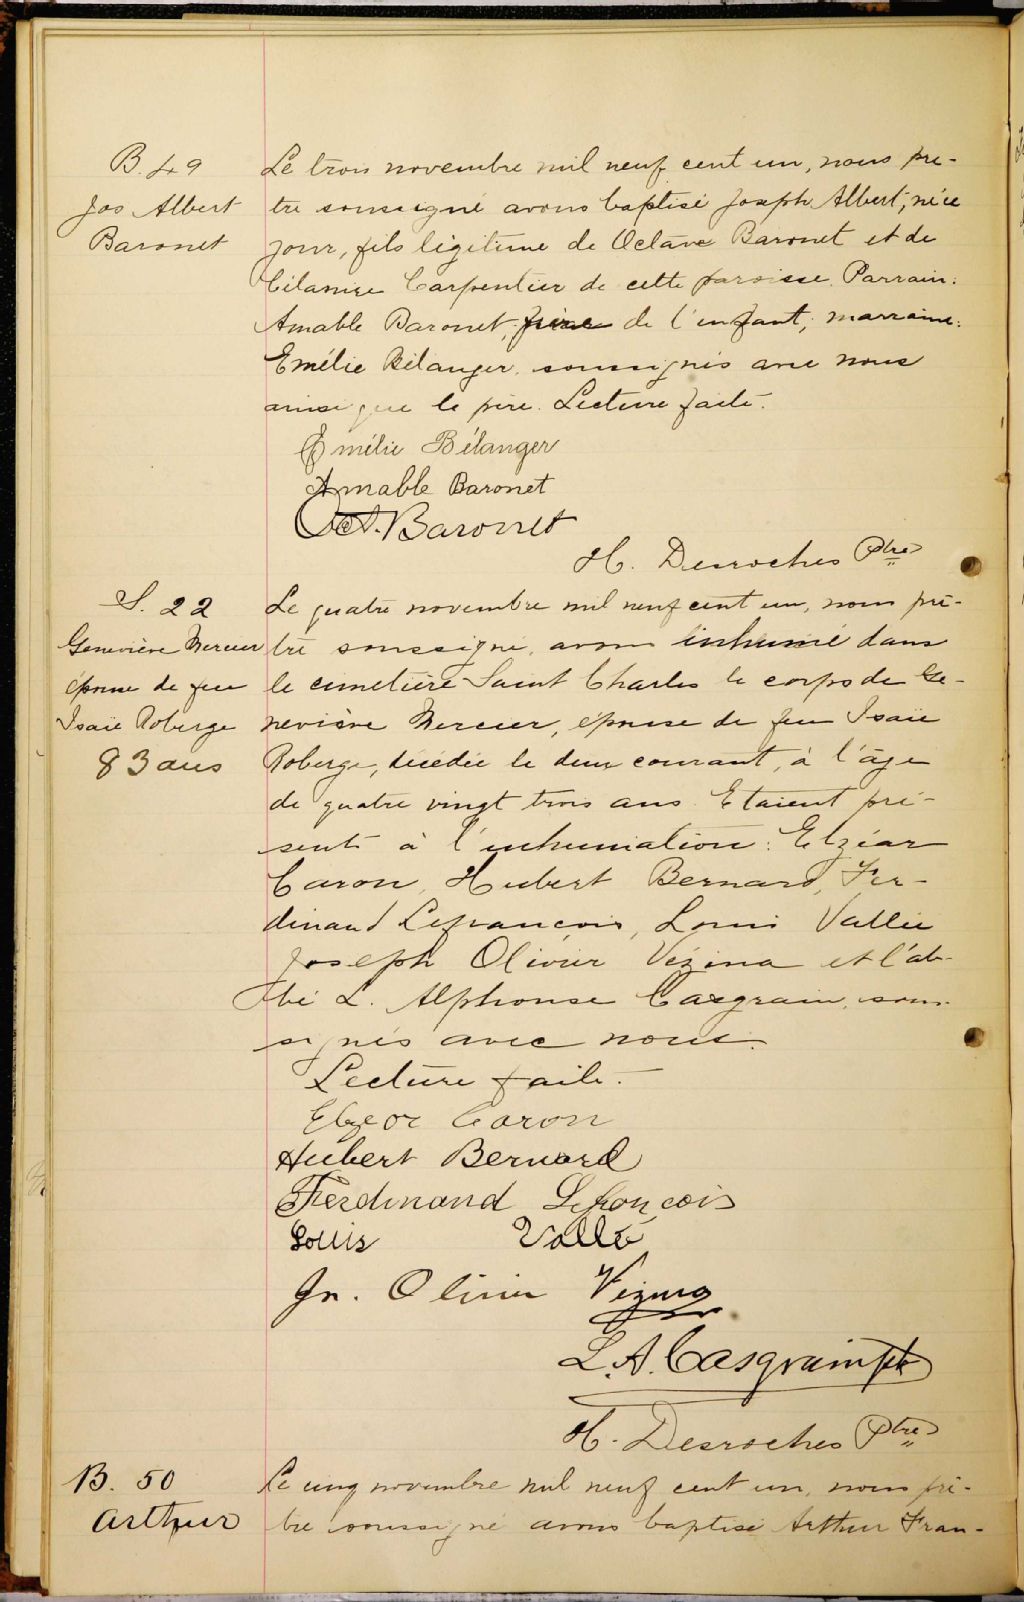 B. 49
Jos Albert
Baronet
Le trois novembre mil neuf cent un, nous prê-
tre soussigné avons baptisé Joseph Albert, né ce
jour, fils légitime de Octave Baronet et de
Célanire Carpentier de cette paroisse. Parrain:
Amable Baronet, frère de l'enfant; marraine:
Emélie Bélanger, soussignés avec nous
ainsi que le père. Lecture faite.
Emélie Bélanger
Amable Baronet
Oct. Baronet
H. Desroches Ptre
S. 22
Geneviève Mercier
épouse de feu
Isaïe Roberge
83 ans
Le quatre novembre mil neuf cent un, nous prê-
tre soussigné, avons inhumé dans
le cimetière Saint Charles le corps de Ge-
neviève Mercier, épouse de feu Isaïe
Roberge, décédée le deux courant, à l'âge
de quatre vingt trois ans. Etaient pré-
sents à l'inhumation: Elzéar
Caron, Hubert Bernard, Fer-
dinand Lefrançois, Louis Vallée
Joseph Olivier Vézina et l'ab-
bé L. Alphonse Casgrain, sous-
signés avec nous.
Lecture faite.
Elzeor Caron
Hubert Bernard
Ferdinand Lefronçois
Louis Vallé
Jos. Olivier Vézina
L. A. Casgrain ptr
H. Desroches Ptre
B. 50
Arthur
Le cinq novembre mil neuf cent un, nous prê-
tre soussigné avons baptisé Arthur Fran-